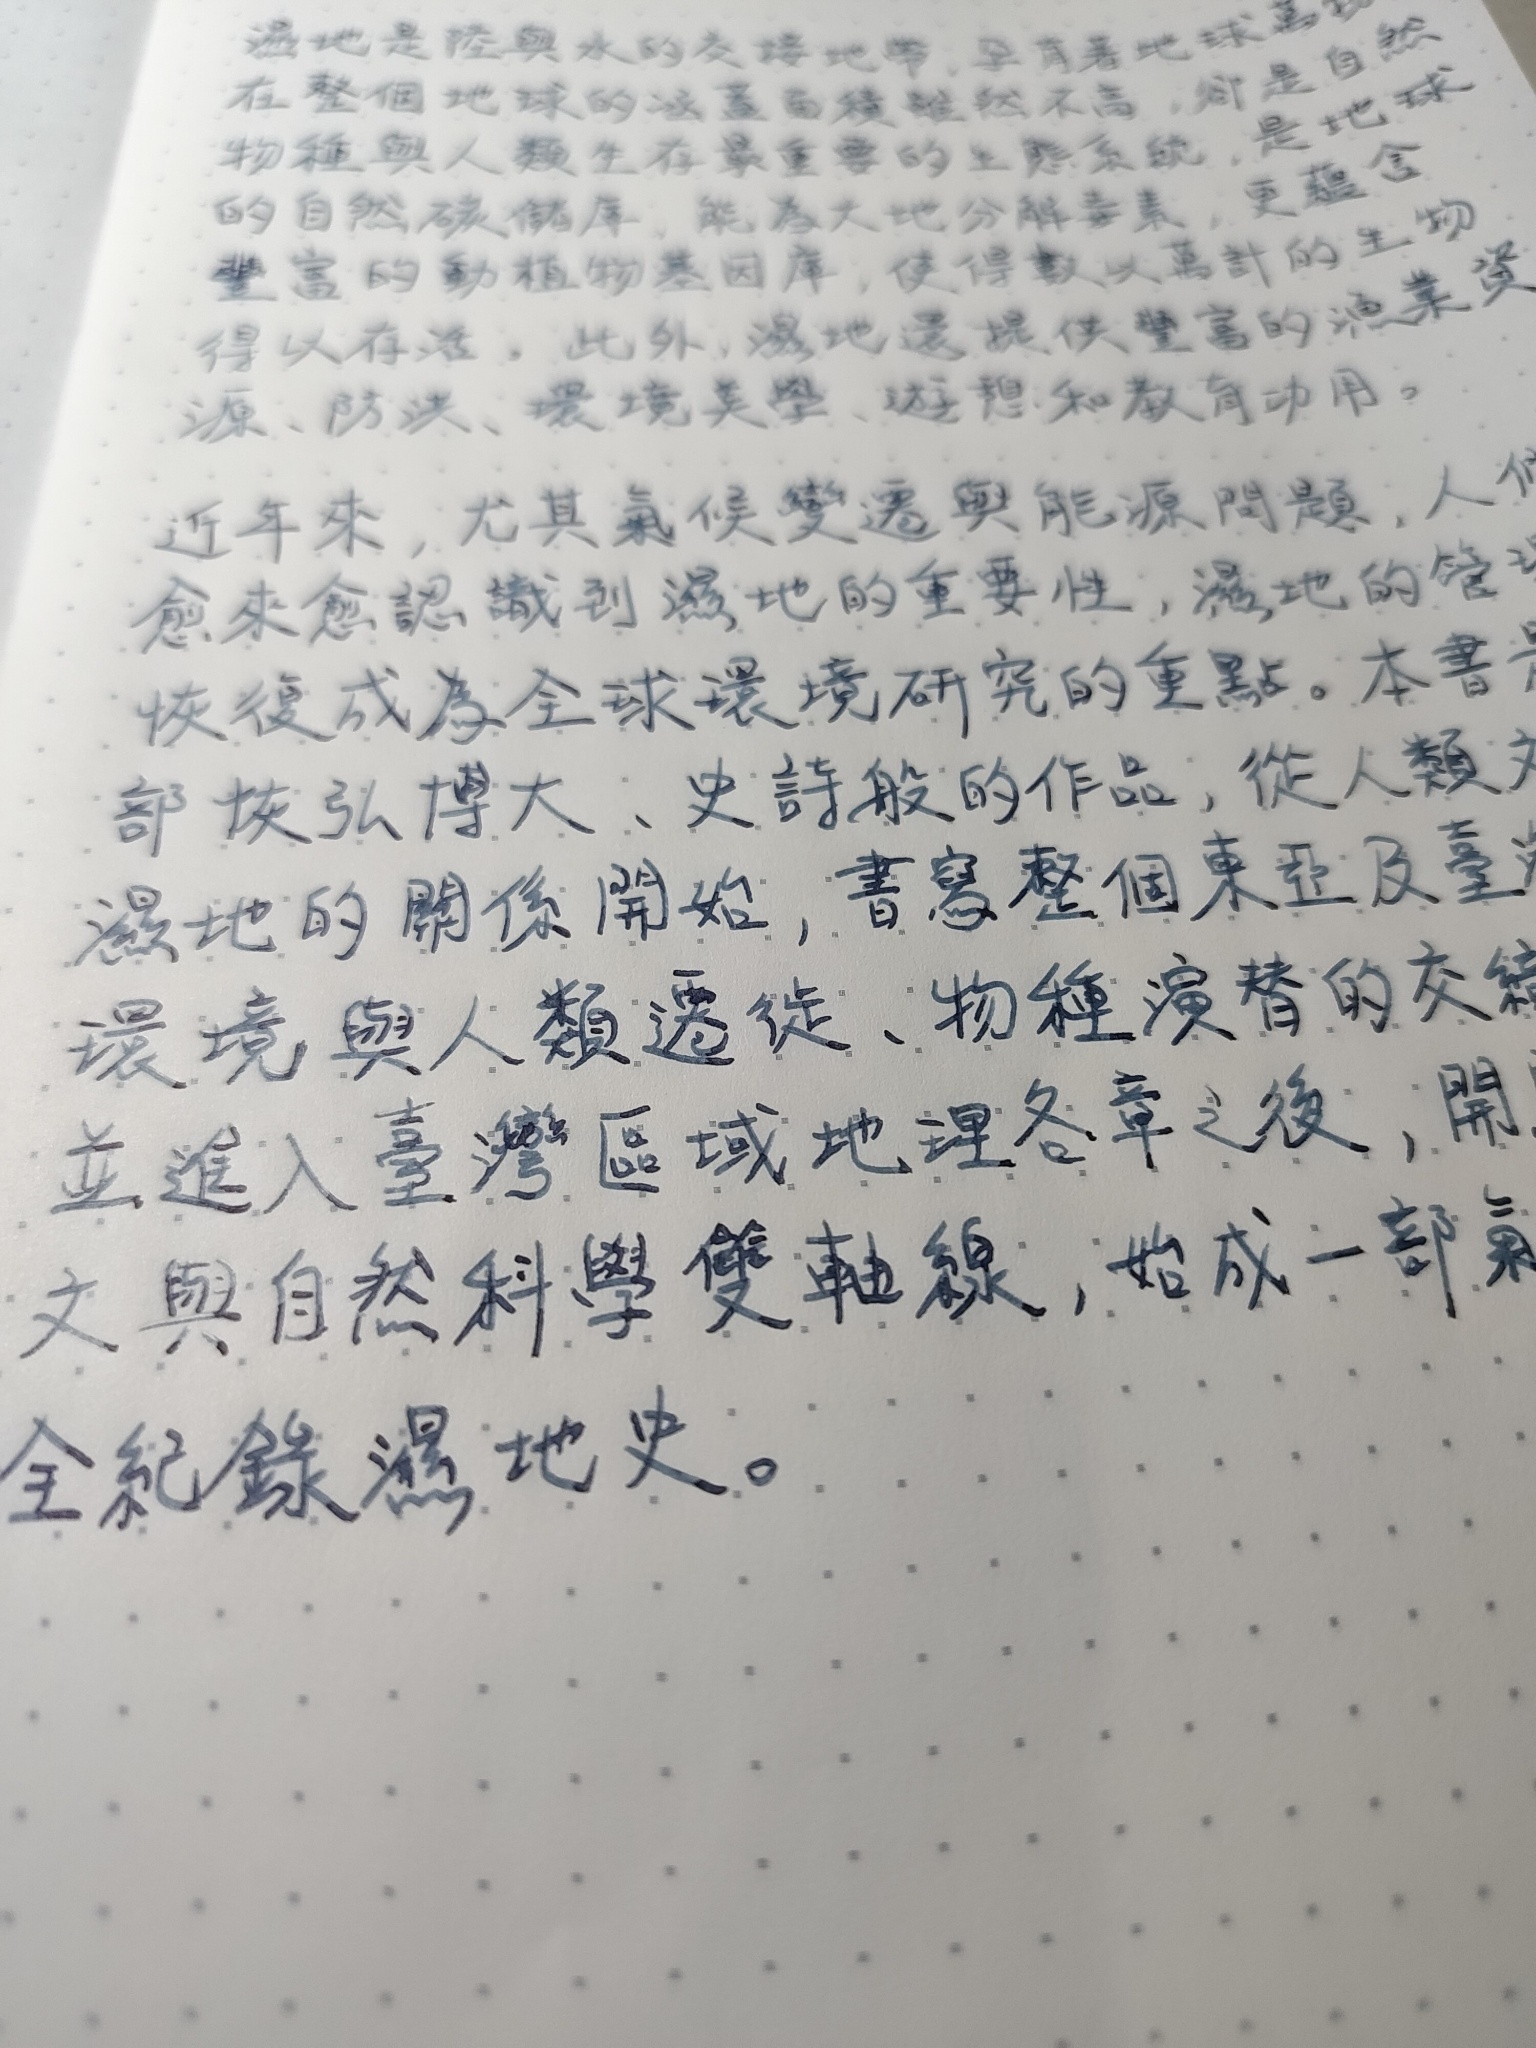 濕地是陸與水的交接地帶,孕育著地球萬物
在整個地球的涵蓋面積雖然不高,卻是自然
物種與人類生存最重要的生態系統,是地球
的自然碳儲庫,能為大地分解毒素,更蘊含
豐富的動植物基因庫,使得數以萬計的生物
得以存活。此外,濕地還提供豐富的漁業資
源、防洪、環境美學、遊憩和教育功用。
近年來,尤其氣候變遷與能源問題,人們
愈來愈認識到濕地的重要性,濕地的管理
恢復成為全球環境研究的重點。本書是
部恢弘博大、史詩般的作品,從人類文
濕地的關係開始,書寫整個東亞及臺灣
環境與人類遷徙、物種演替的交織
並進入臺灣區域地理各章之後,開
文與自然科學雙軸線,始成一部氣
全紀錄濕地史。